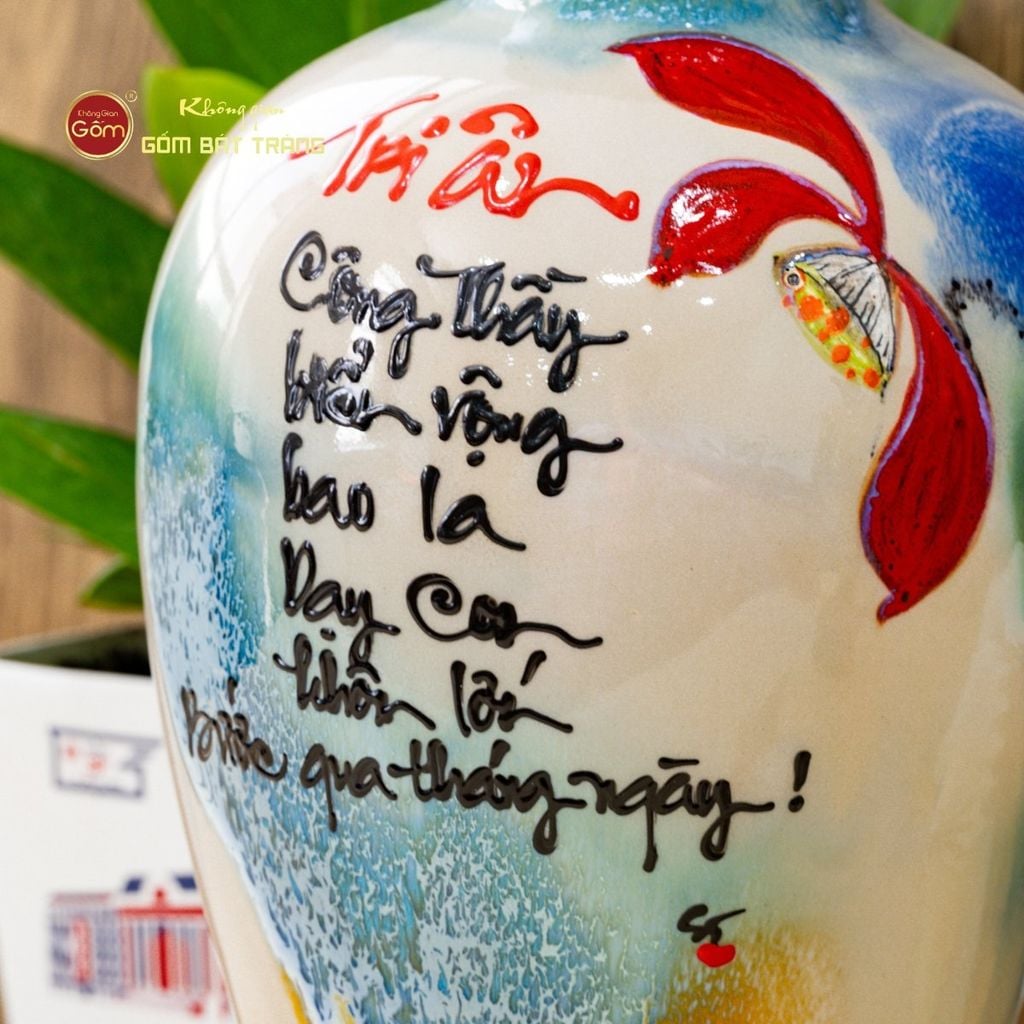 Không Gian
Gốm
Không gian
GỐM BÁT TRÀNG
Tri ân
Công Thầy
biển rộng
bao la
Dạy Con
khôn lớn
bước qua tháng ngày !